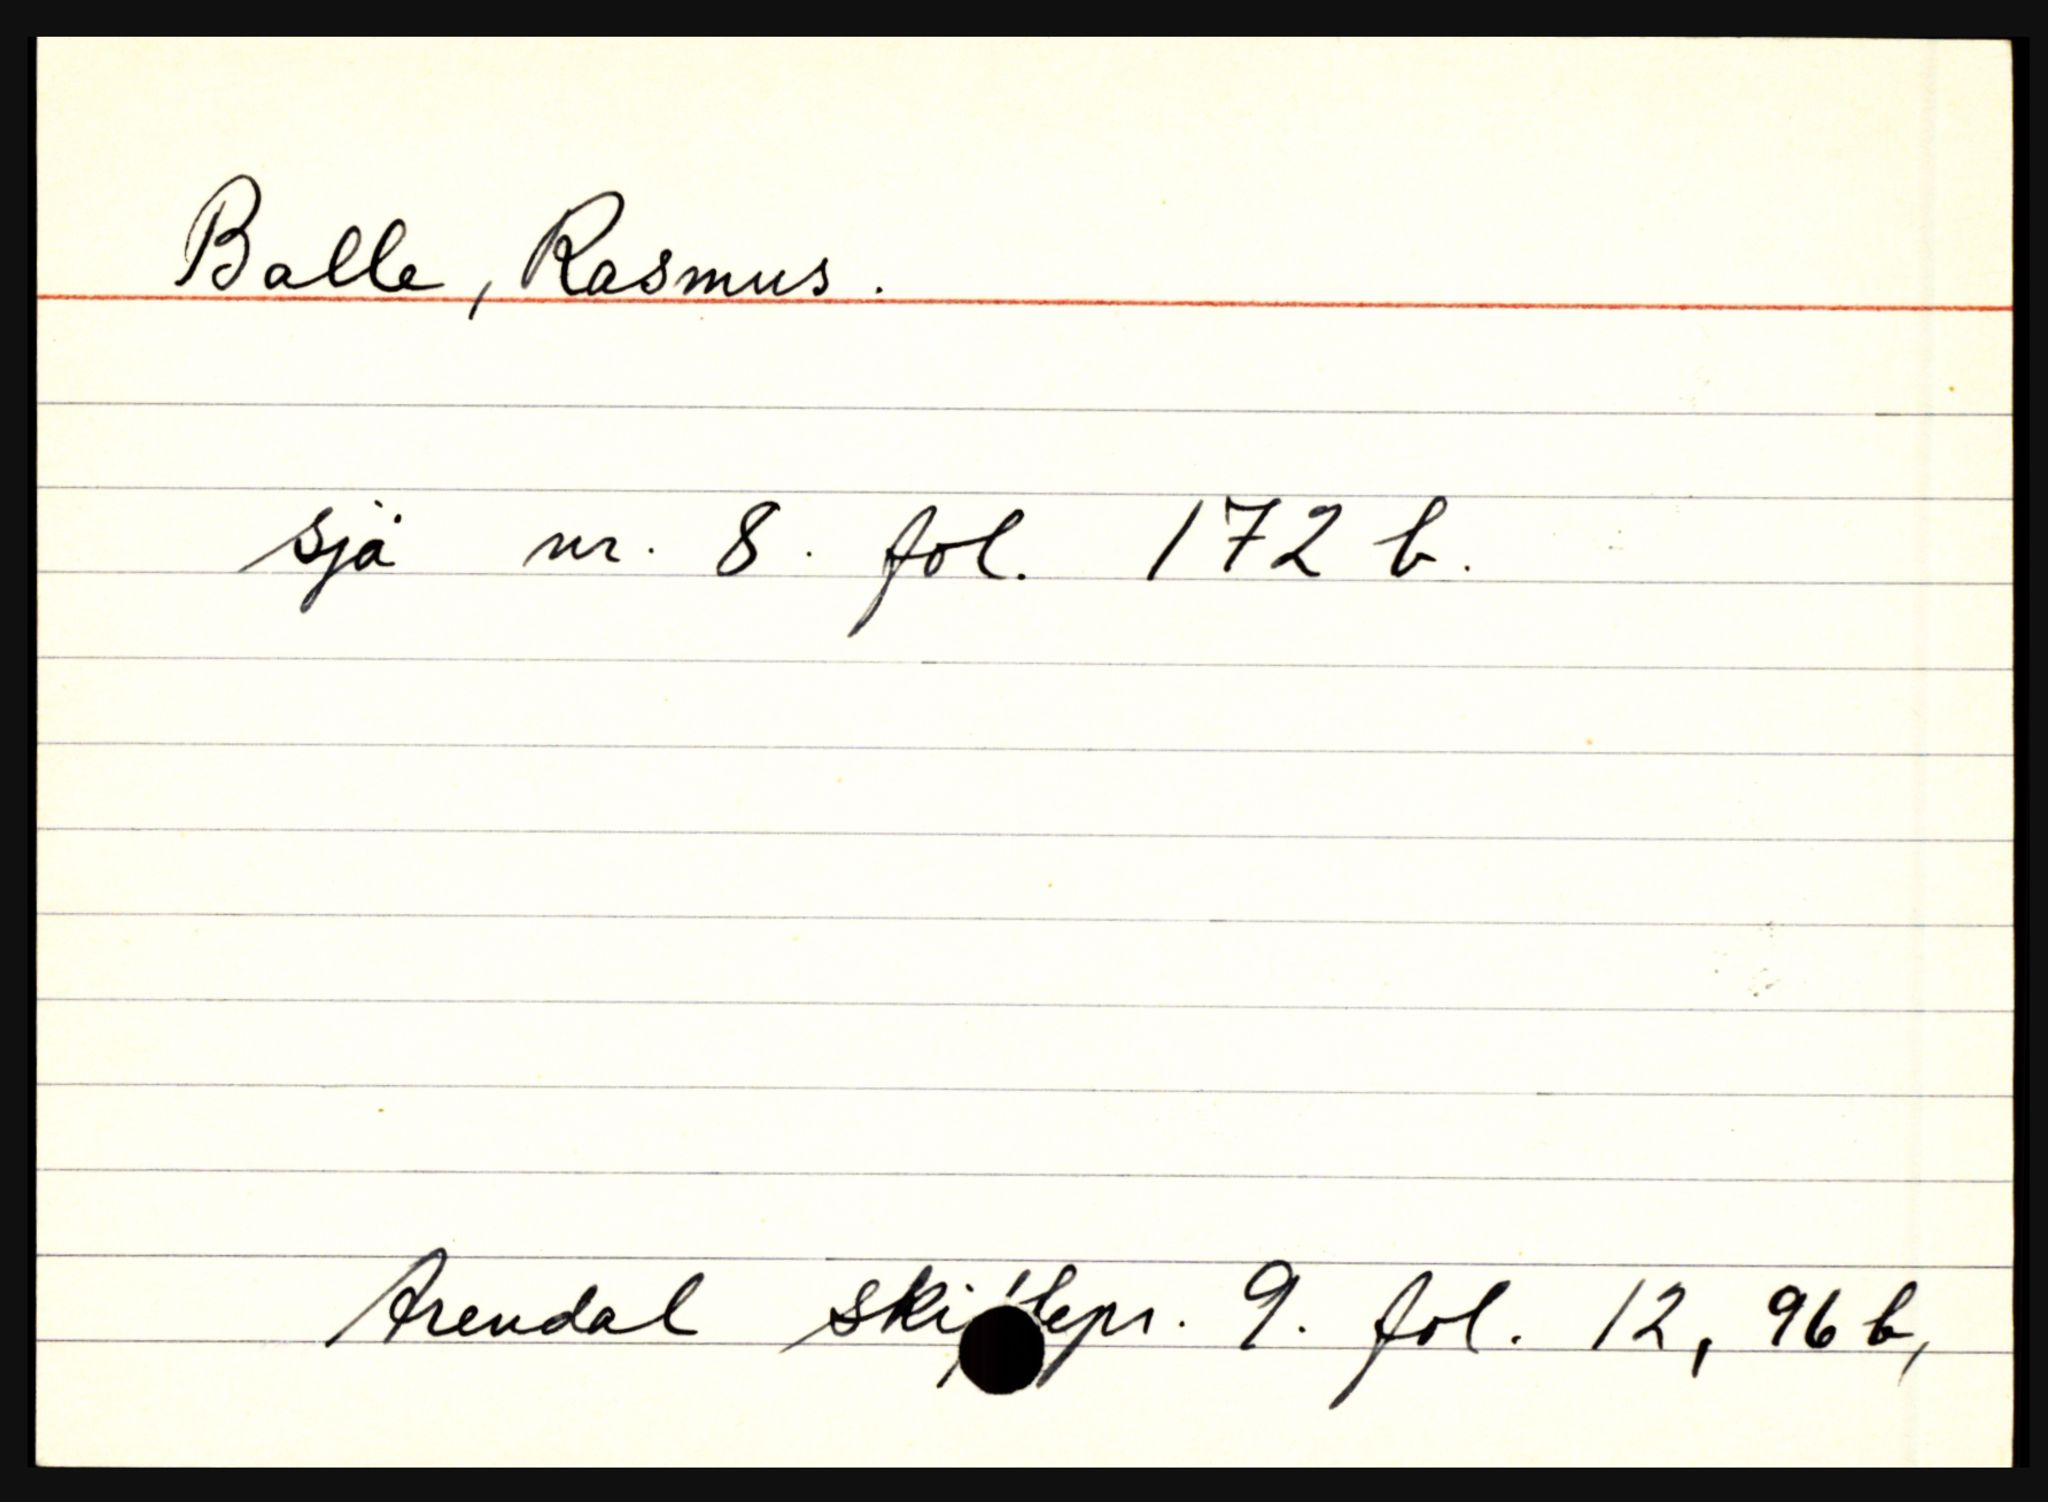 Balle, Rasmus.
sjå nr. 8. fol. 172 b.
Arendal 9. fol. 12, 96 b,